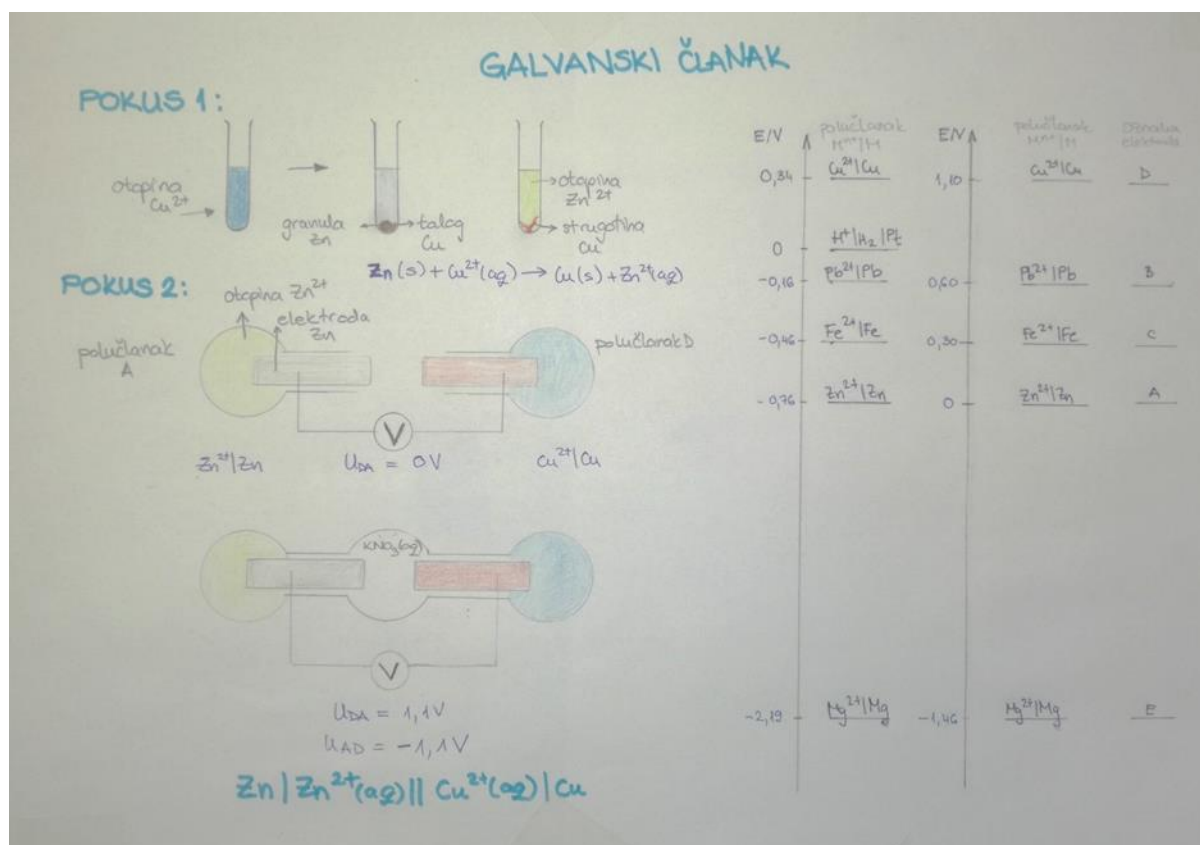 GALVANSKI ČLANAK
POKUS 1:
otopina
Cu²⁺
granula
Zn
talog
Cu
otopina
Zn²⁺
strugotina
Cu
Zn(s) + Cu²⁺(aq) → Cu(s) + Zn²⁺(aq)
POKUS 2:
otopina Zn²⁺
elektroda
Zn
polučlanak
A
polučlanak D
V
Zn²⁺|Zn
U_DA = 0V
Cu²⁺|Cu
KNO₃(aq)
V
U_DA = 1,1V
U_AD = -1,1V
Zn|Zn²⁺(aq)||Cu²⁺(aq)|Cu
E/V
polučlanak
Mⁿ⁺|M
0,34
Cu²⁺|Cu
0
H⁺|H₂|Pt
-0,16
Pb²⁺|Pb
-0,46
Fe²⁺|Fe
-0,76
Zn²⁺|Zn
-2,19
Mg²⁺|Mg
E/V
polučlanak
Mⁿ⁺|M
oznaka
elektrode
1,10
Cu²⁺|Cu
D
0,60
Pb²⁺|Pb
B
0,30
Fe²⁺|Fe
C
0
Zn²⁺|Zn
A
-1,46
Mg²⁺|Mg
E